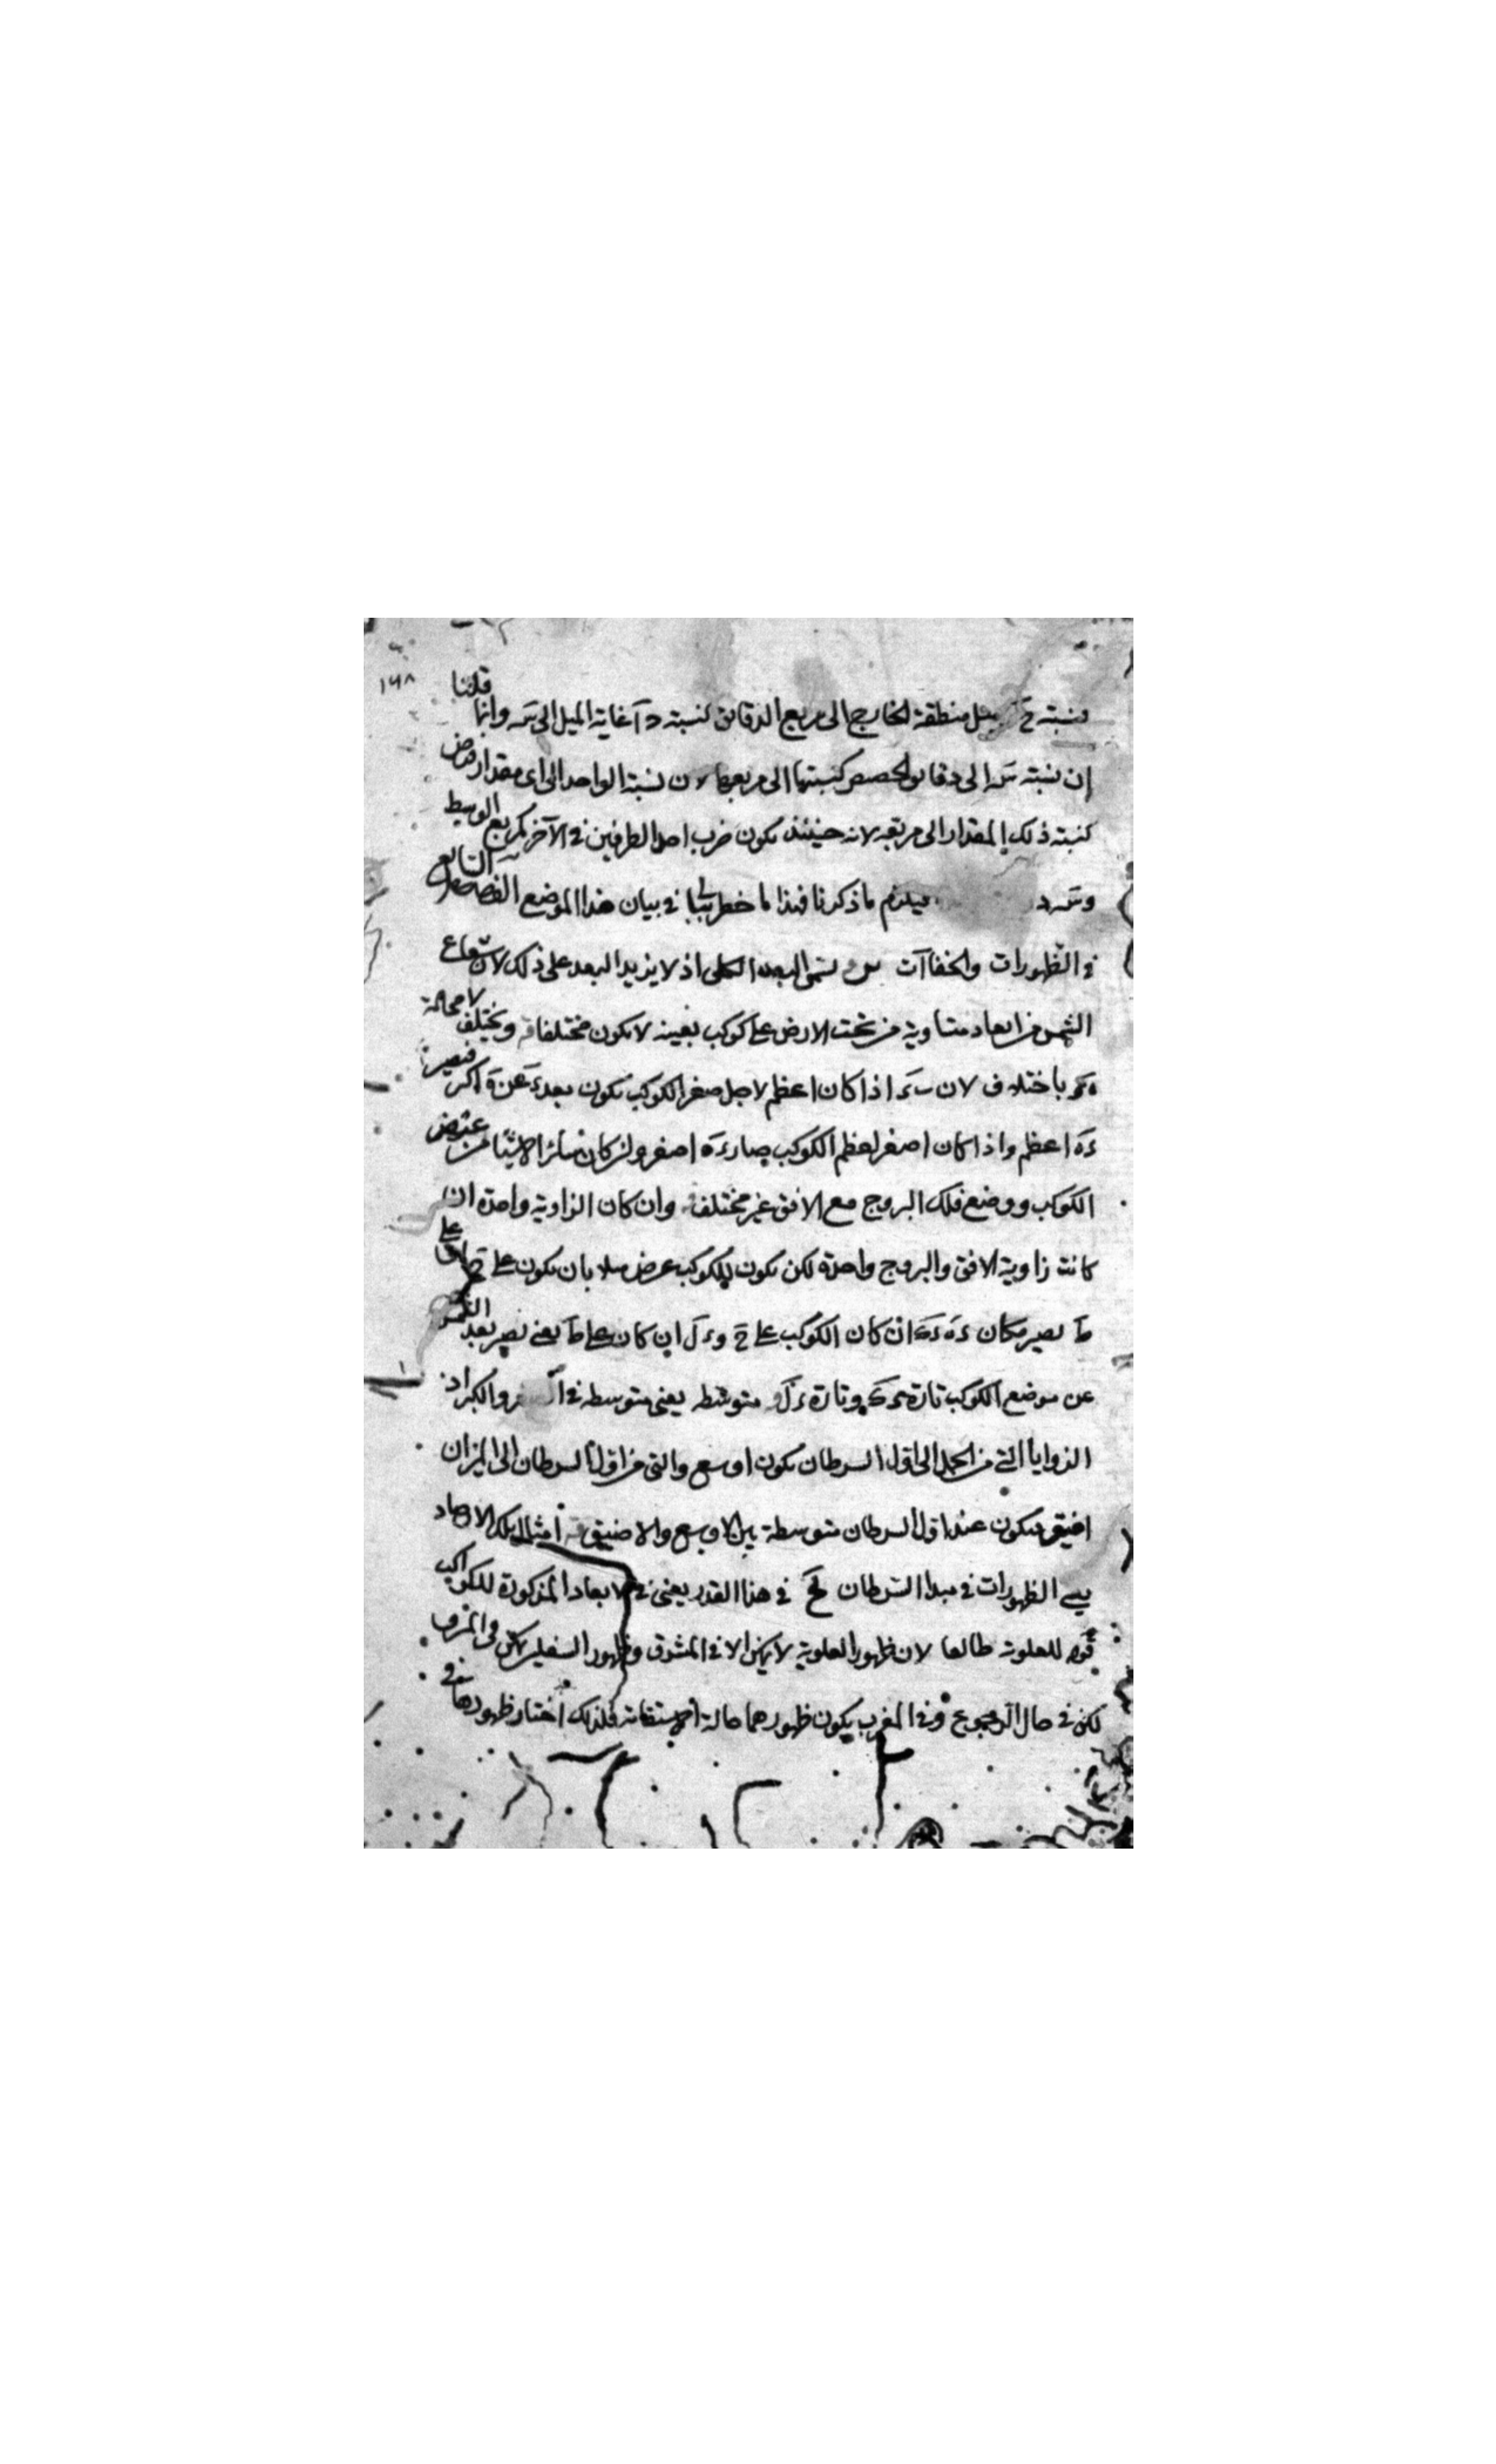 ١٦٨
فنسبة ميل منطقة الخارج الى مربع الدقائق كنسبة د آ غاية الميل الى سه وانما قلنا
ان نسبة سه الى دقائق الحصص كنسبتها الى مربعها لان نسبة الواحد الى اى مقدار فرض
كنسبة ذلك المقدار الى مربعه لانه حينئذ يكون ضرب احد الطرفين فى الآخر كمربع الوسط
فيلزم ما ذكرنا فهذا ما خطر ببالى فى بيان هذا الموضع الفصل التاسع
فى الظهورات والخفاآت البعد الكلى اذ لا يزيد البعد على ذلك لان شعاع
الشمس من ابعاد متساوية من تحت الارض على كوكب بعينه لا يكون مختلفا ويختلف لا محالة
باختلاف لان اذا كان اعظم لاجل صغر الكوكب يكون بعد عن اكثر فيصير
ءه اعظم واذا كان اصغر لعظم الكوكب صار ءه اصغر وان كان سائر الاشياء من عرض
الكوكب ووضع فلك البروج مع الافق غير مختلف وان كان الزاوية واحدة ان
كانت زاوية الافق والبروج واحدة لكن يكون للكوكب عرض مثلا بان يكون على ح او على
ط يصير مكان ءه ان كان الكوكب على ح و ءل ان كان على ط يعنى يصير بعد الشمس
عن موضع الكوكب تارة وتارة ءل متوسطه يعنى متوسطه فى الصغر والكبر اذ
الزوايا التى من الحمل الى اول السرطان يكون اوسع والتى من اول السرطان الى الميزان
اضيق فيكون عند اول السرطان متوسطة بين الاوسع والاضيق امثال تلك الابعاد
الظهورات فى مبدا السرطان فى هذا القدر يعنى فى الابعاد المذكورة للكواكب
قوله للعلوية طالعا لان ظهور العلوية لا يمكن الا فى المشرق وظهور السفلين يمكن فى المشرق
لكن فى حال الرجوع وفى المغرب يكون ظهورهما حالة الاستقامة فلذلك اختار ظهورهما فى